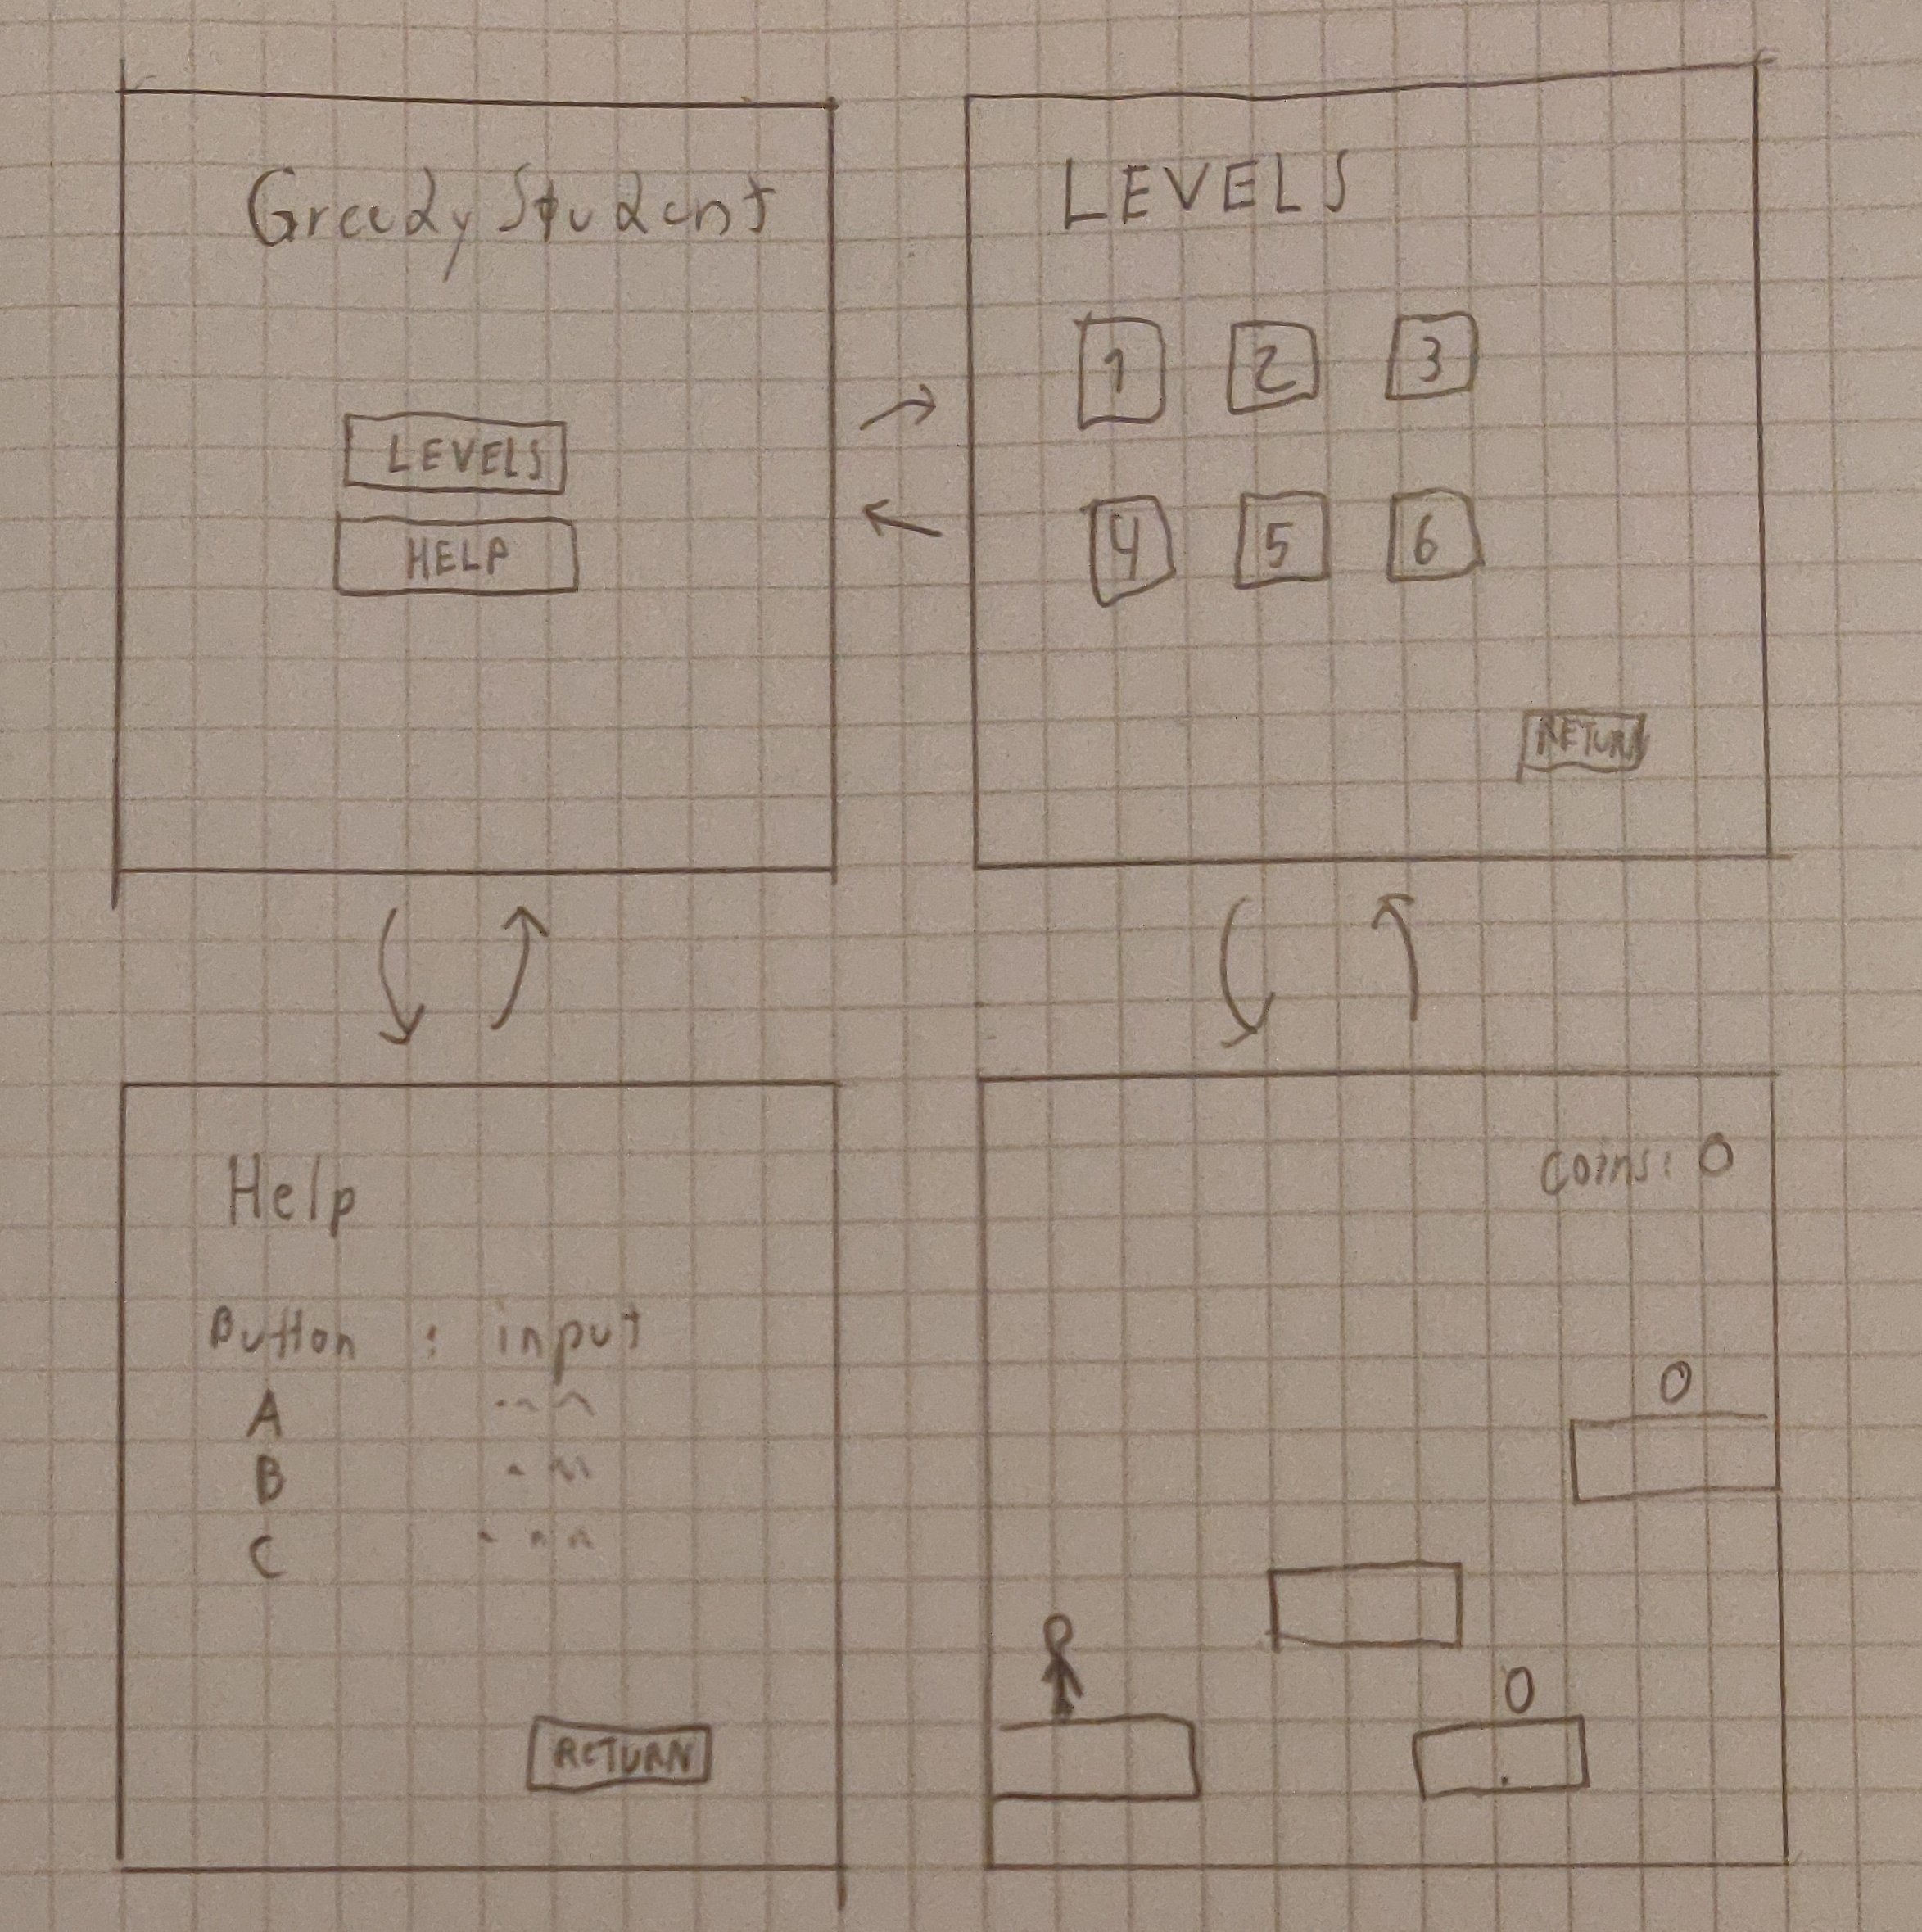 Greedy Student
LEVELS
HELP
LEVELS
1 2 3
4 5 6
RETURN
Help
Button : input
A
B
C
RETURN
Coins: 0